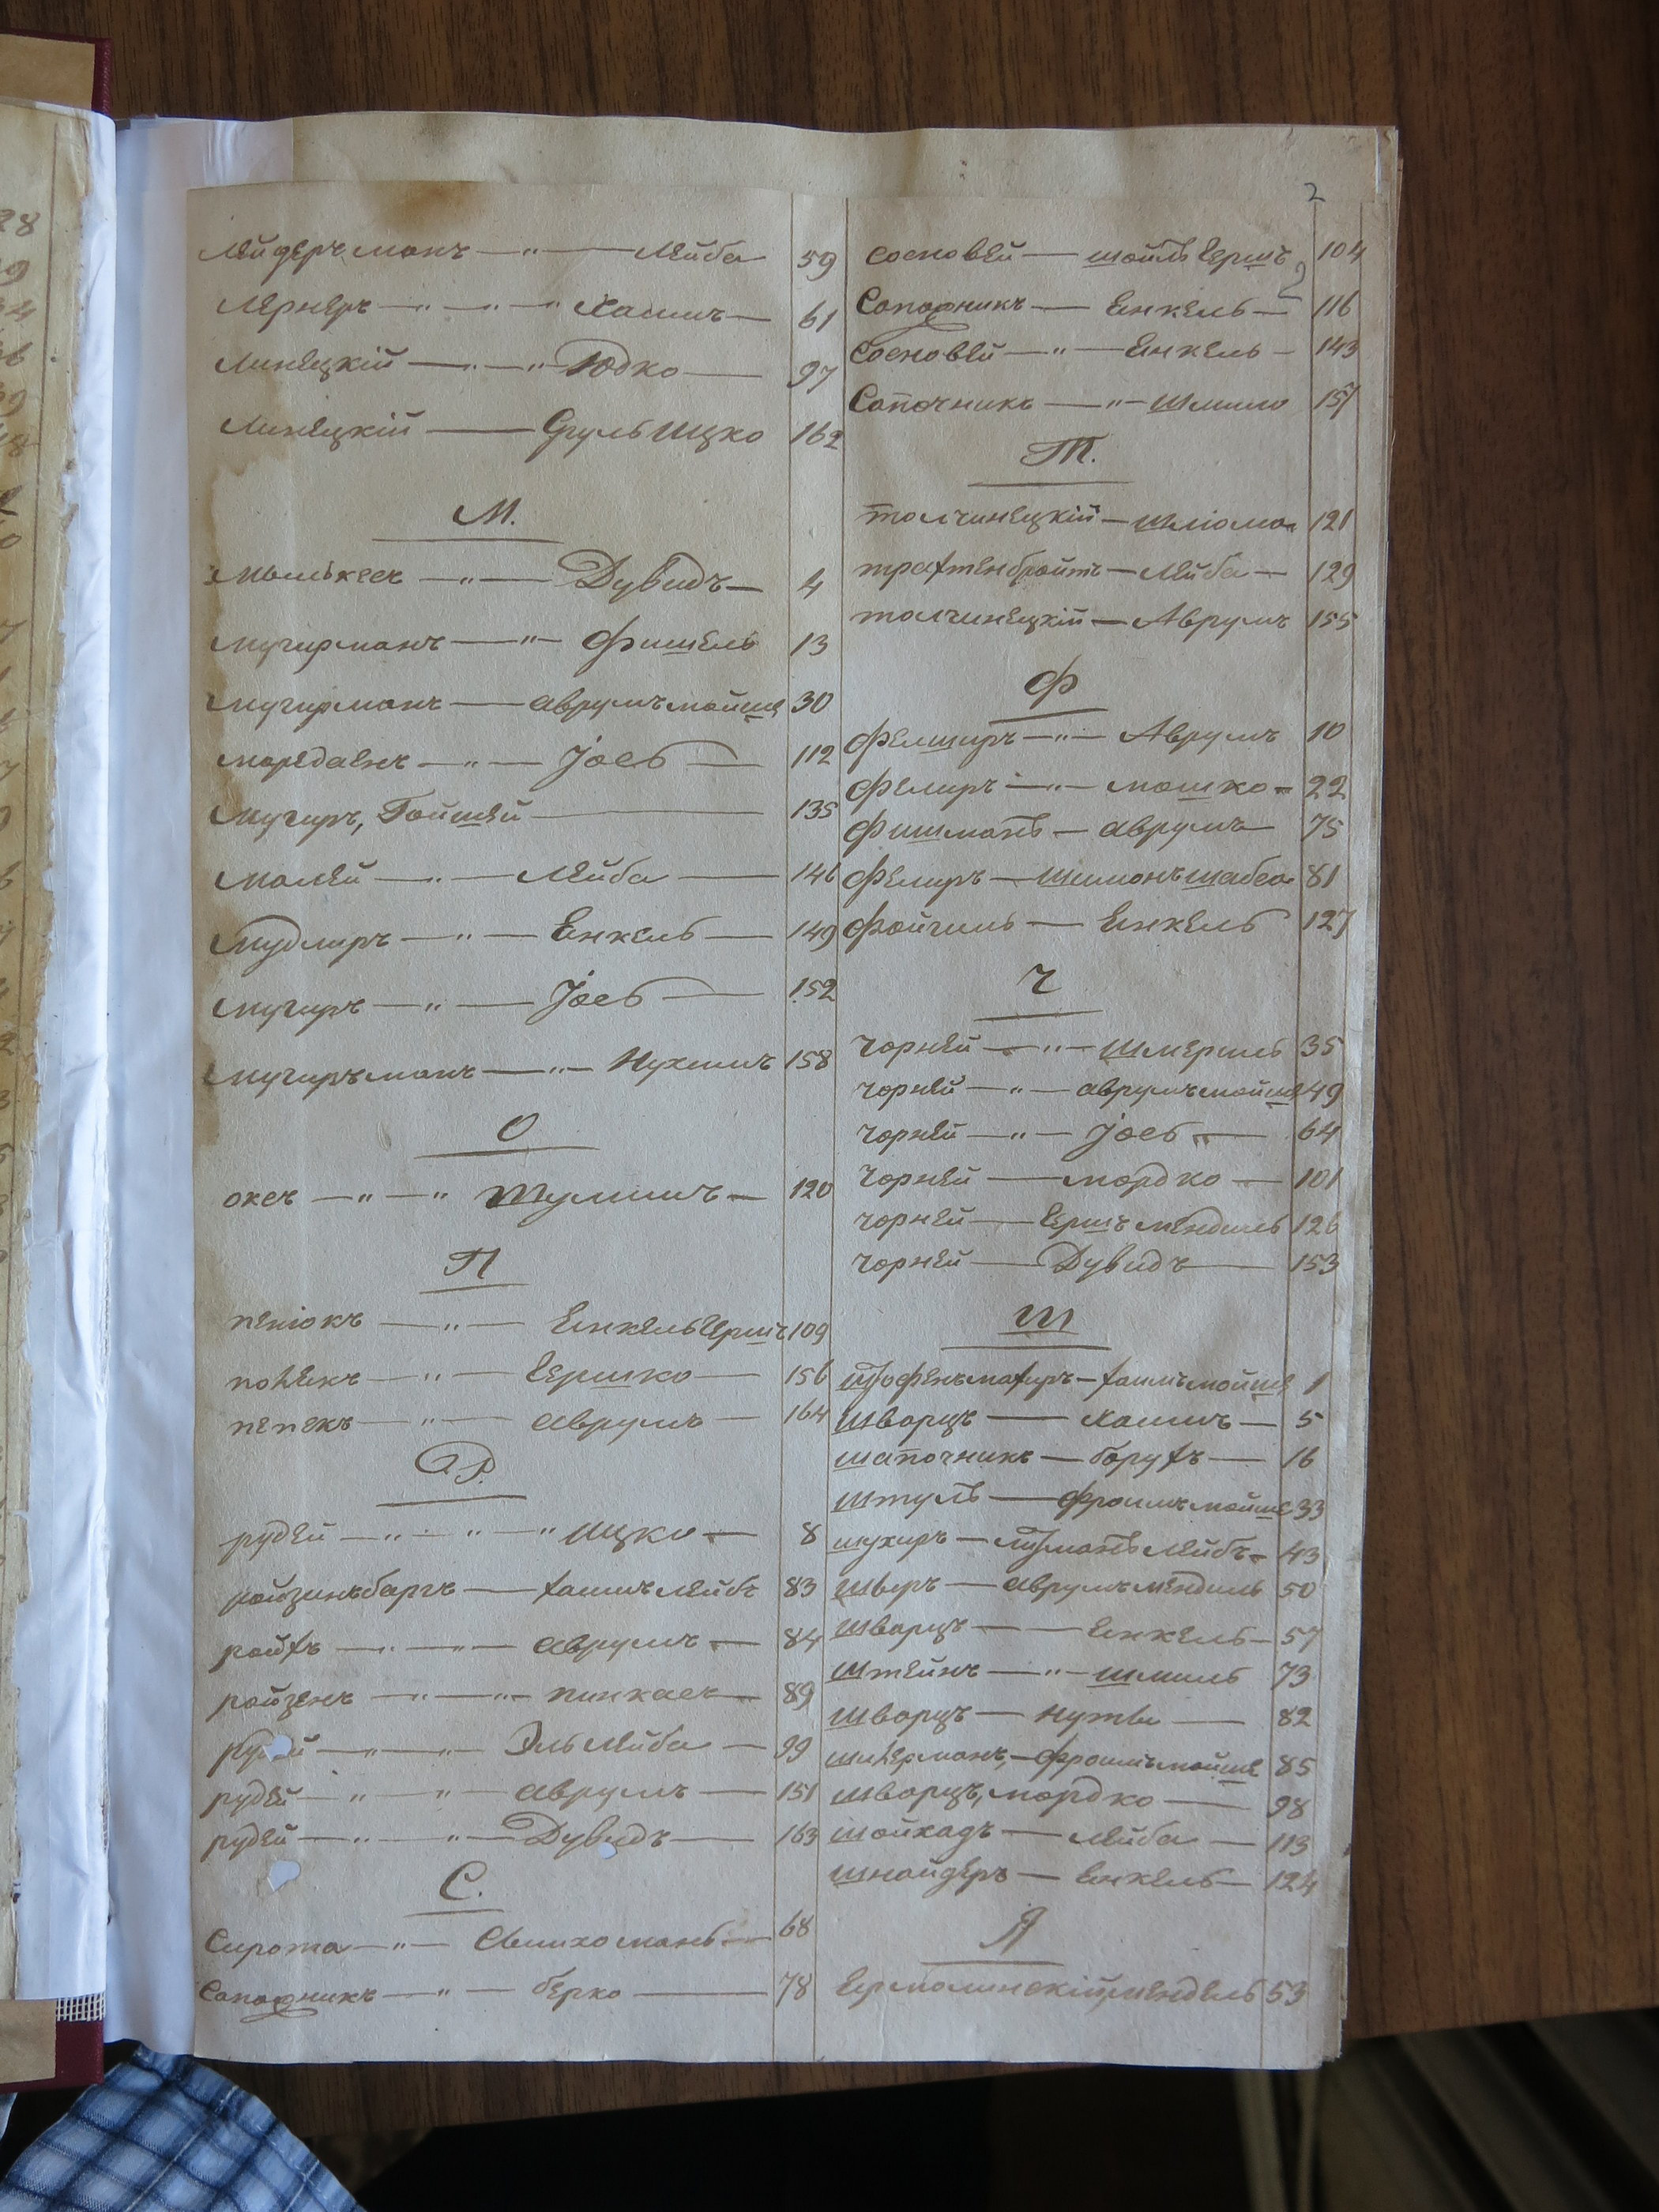 2
Лейдерманъ —„— Лейба 59
Лернеръ —„—„—„ Хаимъ — 61
Линецкій —„—„ Юдко — 97
Линецкій — Сруль Ицко 162
М.
Дувидъ — 4
мучирманъ —„— Фишель 13
мучирманъ — аврумъ мойше 30
—„— Іось — 112
мучиръ, Гойшей — 135
малей —„— Лейба — 146
мудлиръ —„— Енкель — 149
мучиръ —„— Іось — 152
мучирманъ —„— Нухимъ 158
О
оксъ —„—„ — 120
П
пеніокъ —„— Енкель Гершъ 109
—„— Гершко — 156
пепекъ —„— аврумъ — 164
Р.
рудей —„—„—„ Ицко — 8
ройзинъбаргъ — хаимъ Лейбъ 83
ройхъ —„—„— аврумъ — 84
ройзенъ —„—„— пинкасъ — 89
рудей —„—„ Эль Лейба — 99
рудей —„—„— аврумъ — 151
рудей —„—„— Дувидъ — 163
С.
Сирота —„— 68
Сапожникъ —„— берко — 78
сосновей — шойлъ Гершъ 104
Сапожникъ — Енкель — 116
2
Сосновей —„— Енкель — 143
Сапочникъ —„— Шлима 157
Т.
толчинецкій — шліома 121
трахтенбройтъ — Лейба — 129
толчинецкій — Аврумъ 155
Ф
Фелширъ —„— Аврумъ 10
Фелиръ —„— мошко — 22
Фишманъ — аврумъ 75
Фелиръ — Шимонъ шабса 81
Файчиль — Енкель 127
Ч
чорней —„— Шмериль 35
чорней —„— аврумъ мойше 49
чорней —„— Іось — 64
чорней — мордко — 101
чорней — Гершъ мендиль 126
чорней — Дувидъ — 153
Ш
— хаимъ мойше 1
шварцъ — Хаимъ — 5
шапочникъ — борухъ — 16
штуль — Фроимъ мойше 33
шухиръ — Лейбъ — 43
швиръ — аврумъ мендиль 50
шварцъ — Енкель — 57
штейнъ —„— шмиль 73
шварцъ — нута — 82
— Фроимъ мойше 85
шварцъ, мордко — 98
шойхадъ — Лейба — 113
шнайдеръ — Енкель — 124
Я
Ермолинскій, мендель 53